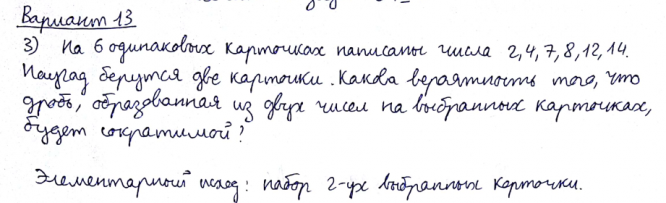 Вариант 13
3) На 6 одинаковых карточках написаны числа 2,4,7,8,12,14.
Наугад берутся две карточки. Какова вероятность того, что
дробь, образованная из двух чисел на выбранных карточках,
будет сократимой?
Элементарный исход: набор 2-ух выбранных карточки.